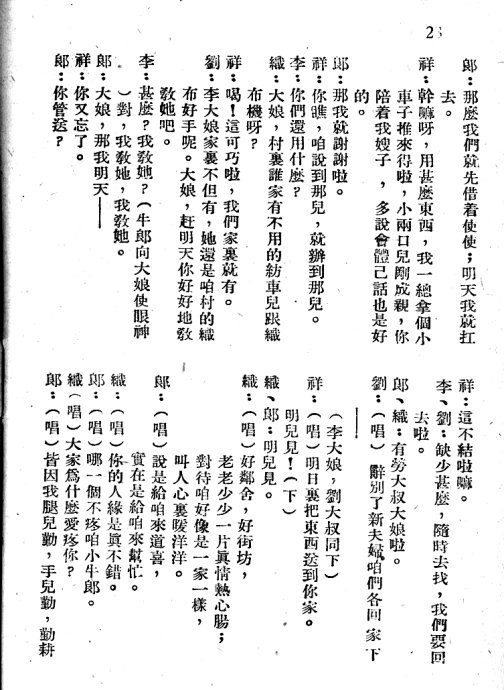 23
郎：那麼我們就先借着使使；明天我就扛
去。
祥：幹嘛呀，用甚麼東西，我一總拿個小
車子推來得啦，小兩口兒剛成親，你
陪着我嫂子，多說會體己話也是好
的。
郎：那我就謝謝啦。
祥：你瞧，咱說到那兒，就辦到那兒。
李：你們還用什麼？
織：大娘，村裏誰家有不用的紡車兒跟織
布機呀？
祥：喝！這可巧啦，我們家裏就有。
劉：李大娘家裏不但有，她還是咱村的織
布好手呢。大娘，赶明天你好好地敎
敎她吧。
李：甚麼？我敎她？（牛郎向大娘使眼神
）對，我敎她，我敎她。
郎：大娘，那我明天——
祥：你又忘了。
郎：你管送？
祥：這不結啦嘛。
李、劉：缺少甚麼，隨時去找，我們要回
去啦。
郎、織：有勞大叔大娘啦。
劉：（唱）辭別了新夫婦咱們各回家下
——
（李大娘，劉大叔同下）
祥：（唱）明日裏把東西送到你家。
明兒見！（下）
織、郎：明兒見。
織：（唱）好鄰舍，好街坊，
老老少少一片眞情熱心腸；
對待咱好像是一家一樣，
叫人心裏暖洋洋。
郎：（唱）說是給咱來道喜，
實在是給咱來幫忙。
織：（唱）你的人緣是眞不錯。
郎：（唱）哪一個不疼咱小牛郎。
織（唱）大家爲什麼愛疼你？
郎：（唱）皆因我腿兒勤，手兒勤，勤耕